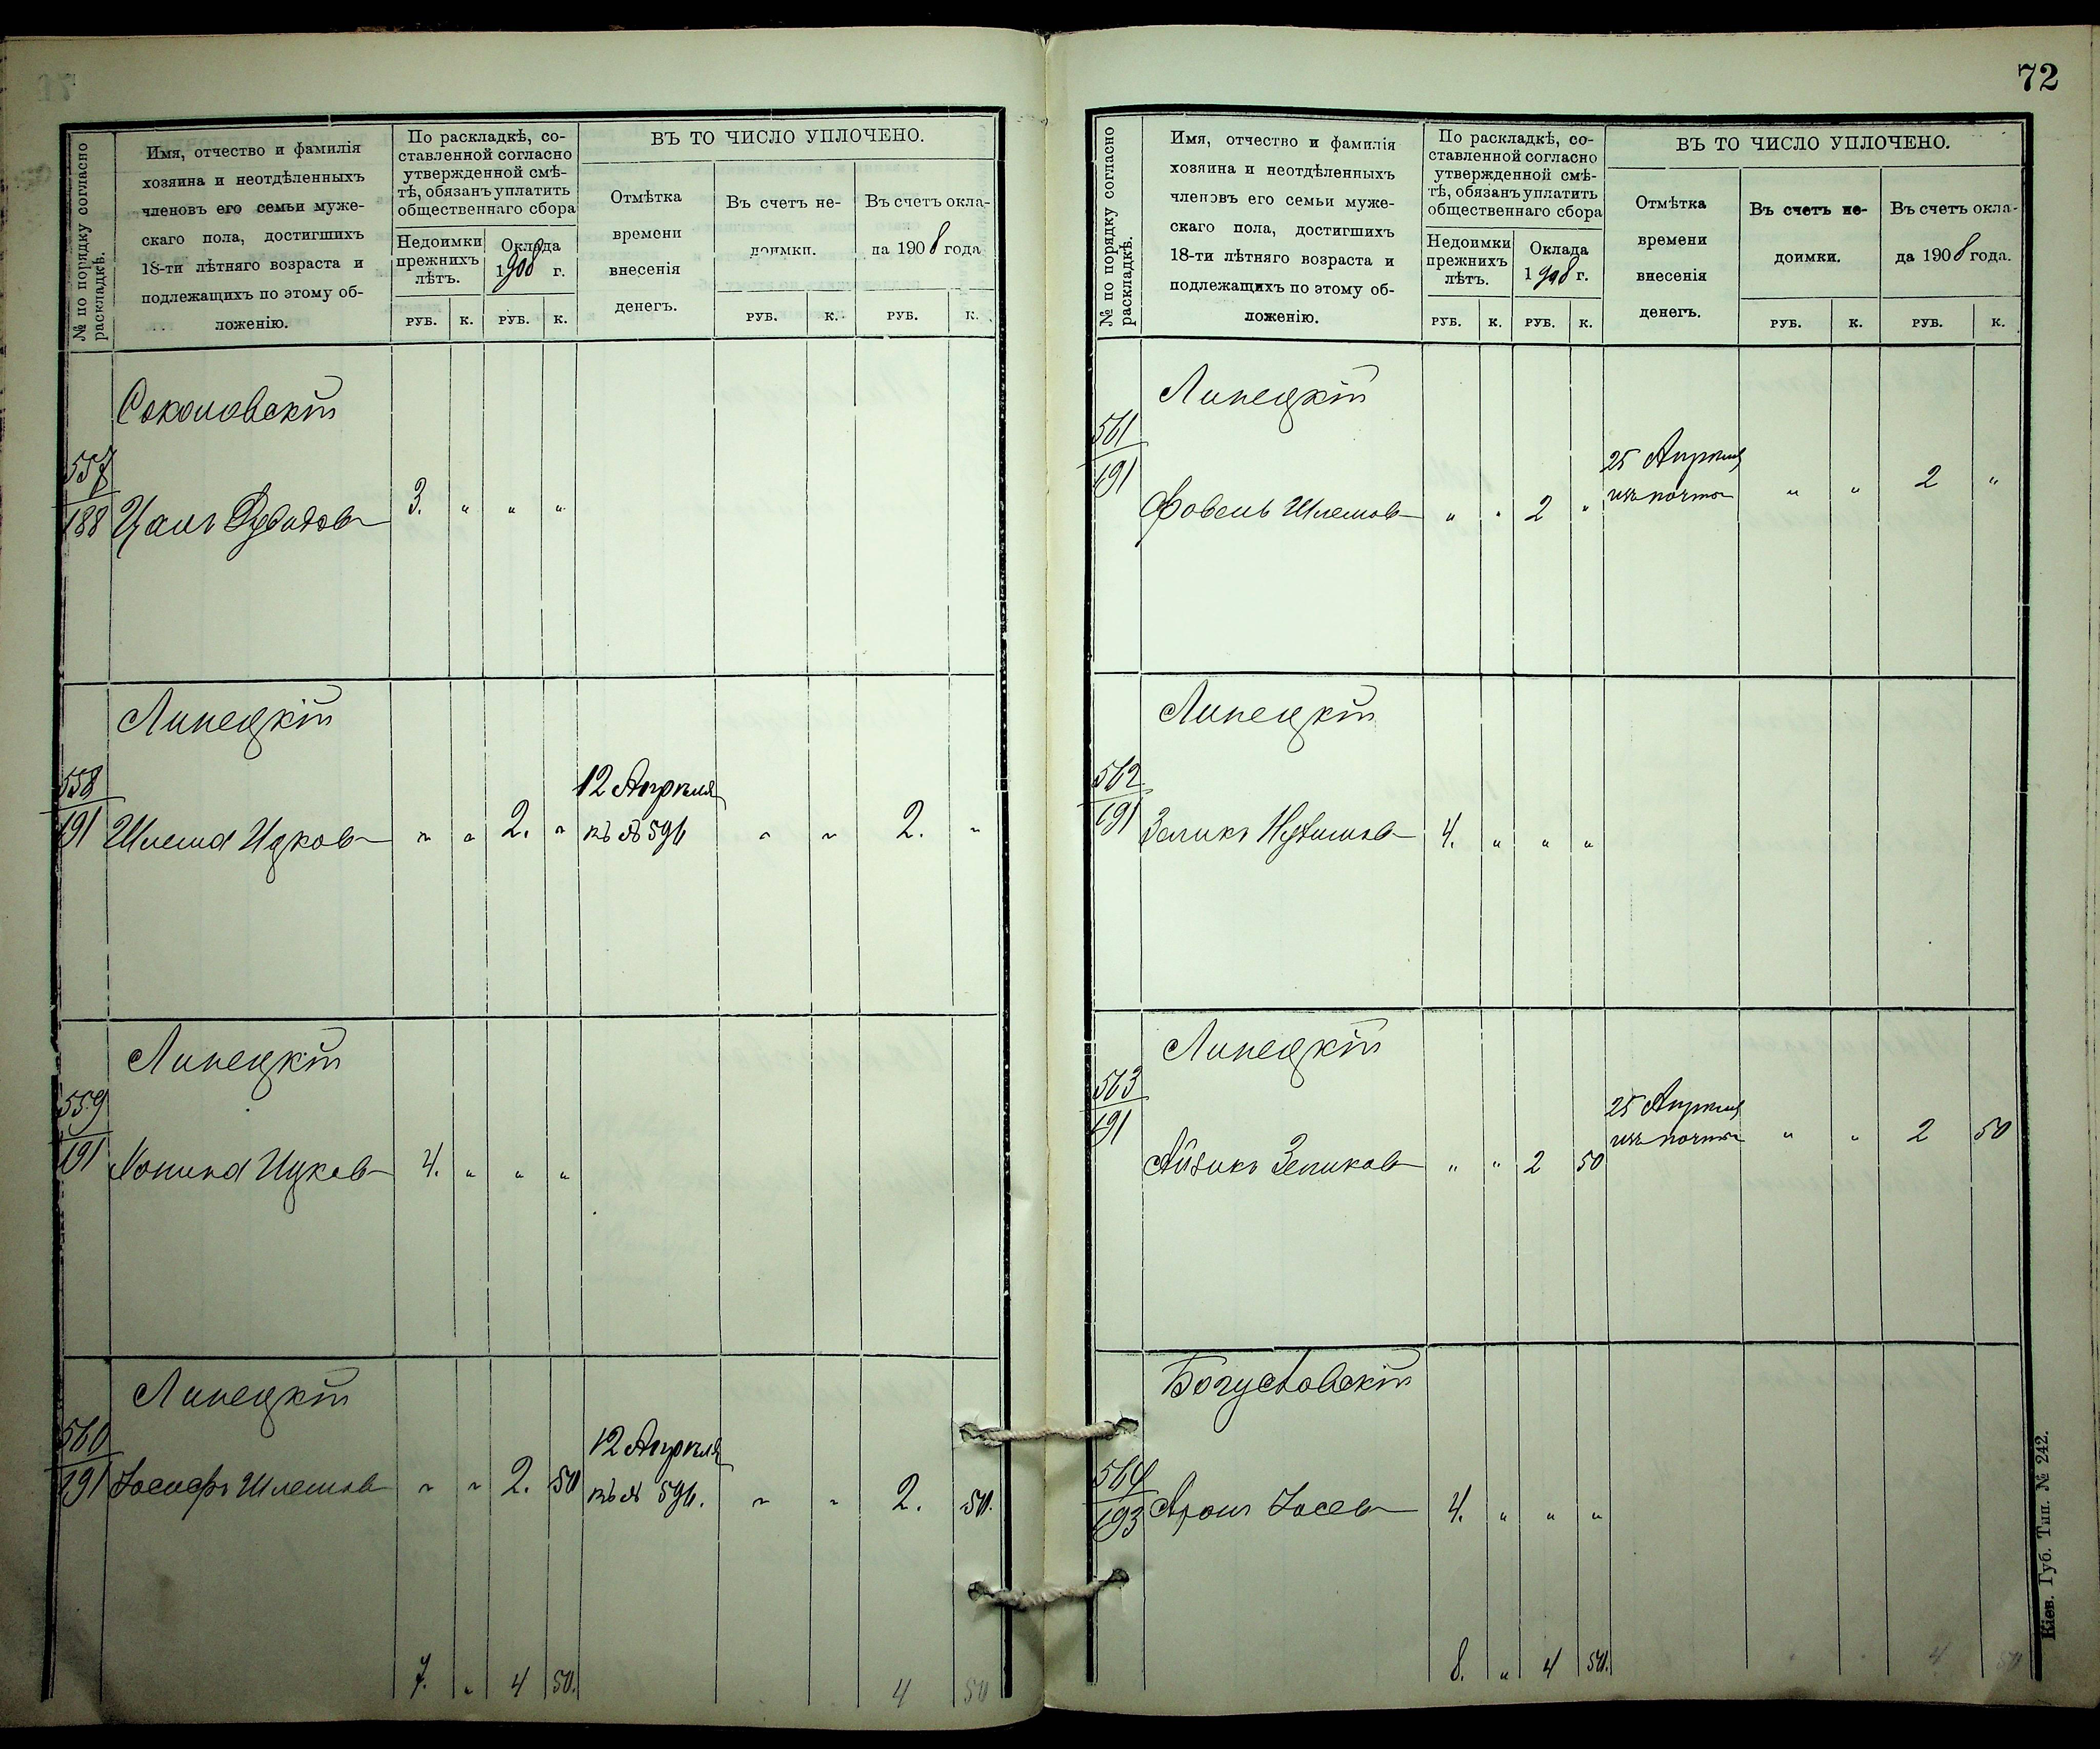 72
№ по порядку согласно раскладкѣ.
Имя, отчество и фамилія
хозяина и неотдѣленныхъ
членовъ его семьи муже-
скаго пола, достигшихъ
18-ти лѣтняго возраста и
подлежащихъ по этому об-
ложенію.
По раскладкѣ, со-
ставленной согласно
утвержденной смѣ-
тѣ, обязанъ уплатить
общественнаго сбора
Недоимки
прежнихъ
лѣтъ.
Оклада
1908 г.
РУБ. К. РУБ. К.
ВЪ ТО ЧИСЛО УПЛОЧЕНО.
Отмѣтка
времени
внесенія
денегъ.
Въ счетъ не-
доимки.
Въ счетъ окла-
да 1908 года
РУБ. К. РУБ. К.
Соколовскій
557
188 Цаль Дувидовъ 3. " " "
Липецкій
558
12 Апрѣля
191 Шлема Ицковъ " " 2. " къ № 596 " " 2. "
Липецкій
559
191 Хонина Ицковъ 4. " " "
Липецкій
560
12 Апрѣля
191 Іосифъ Шлемовъ " " 2. 50 къ № 596. " " 2. 50.
7. " 4 50. 4 50
№ по порядку согласно раскладкѣ.
Имя, отчество и фамилія
хозяина и неотдѣленныхъ
членовъ его семьи муже-
скаго пола, достигшихъ
18-ти лѣтняго возраста и
подлежащихъ по этому об-
ложенію.
По раскладкѣ, со-
ставленной согласно
утвержденной смѣ-
тѣ, обязанъ уплатить
общественнаго сбора
Недоимки
прежнихъ
лѣтъ.
Оклада
1908 г.
РУБ. К. РУБ. К.
ВЪ ТО ЧИСЛО УПЛОЧЕНО.
Отмѣтка
времени
внесенія
денегъ.
Въ счетъ не-
доимки.
Въ счетъ окла-
да 1908 года.
РУБ. К. РУБ. К.
Липецкій
561
25 Апрѣля
191 Фовель Шлемовъ " " 2 " " " 2 "
Липецкій
562
191 Зеликъ 4. " " "
Липецкій
563
25 Апрѣля
191 Айзикъ Зеликовъ " " 2 50 " " 2 50
Богуславскій
564
193 Аронъ Іосевъ 4. " " "
8. " 4 50. 4 50
Кіев. Губ. Тип. № 242.